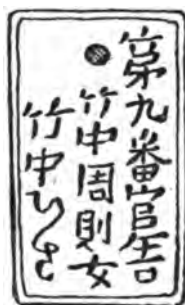 第九番官舎
●竹中周則女
竹中ひさ